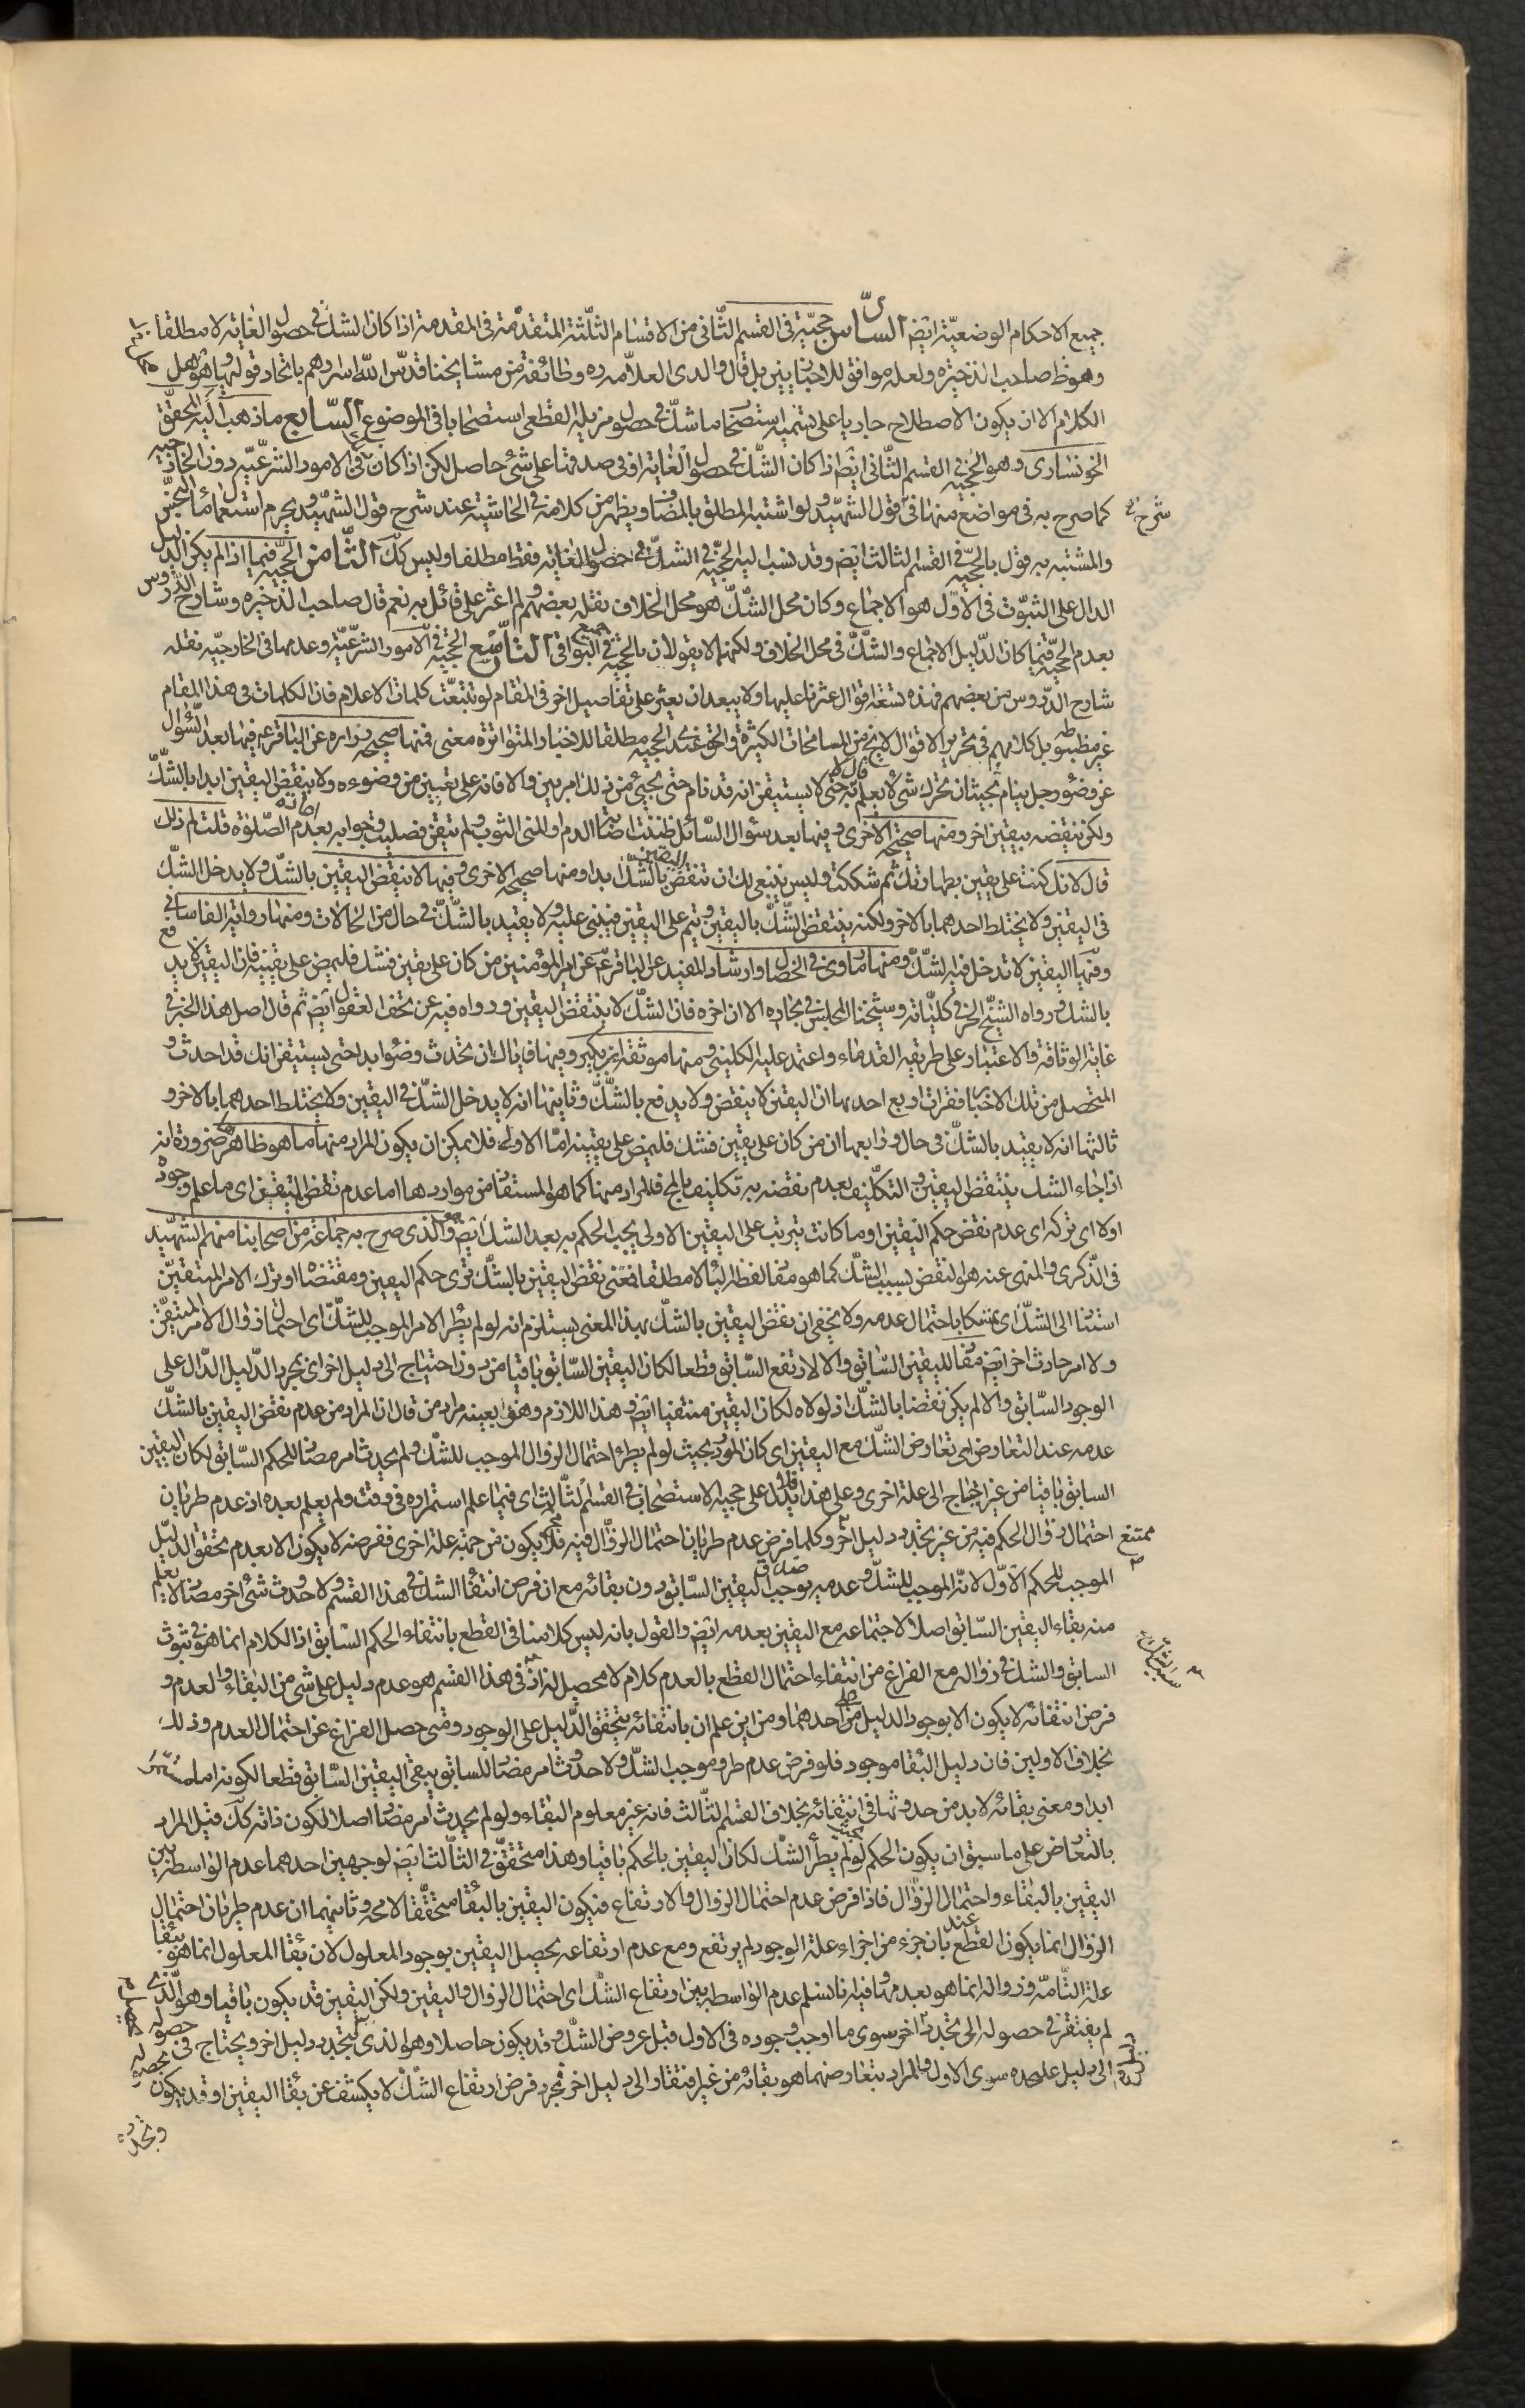 جميع الاحكام الوضعيّة ايضا السادس حجيّته فى القسم الثّانى من الاقسام الثلثة المتقدّمة فى المقدمة اذا كان الشك فى حصول الغاية لا مطلقا
وهو ظ صاحب الذخيرة ولعله موافق للاخباريين بل قال والدى العلاّمه ره وطائفة من مشايخنا قدّس اللّه اسرارهم باتحاد قوليهما
الكلام الا ان يكون الاصطلاح جاريا على تسمية استصحاب ما شكّ فى حصول مزيله القطعى استصحابا فى الموضوع السّابع ما ذهب اليه المحقق
الخونسارى وهو الحجيّه فى القسم الثّانى ايضا اذا كان الشّك فى حصول الغاية او فى صدقها على شئ حاصل لكن اذا كان فى الامور الشرعيّه دون الخارجيّه
كما صرح به فى مواضع منها فى قول الشهيد ولو اشتبه المطلق بالمضاف ويظهر من كلامه فى الحاشية عند شرح قول الشهيد ويحرم استعمال الماء النجس
والمشتبه به قول بالحجيّه فى القسم الثالث ايضا وقد نسب اليه الحجيّه فى الشكّ فى حصول الغاية فقط مطلقا وليس كك الثّامن الحجيّه فيما اذا لم يكن الدليل
الدال على الثبوت فى الاوّل هو الاجماع وكان محل الشّكّ هو محل الخلاف نقله بعضهم ولم اعثر على قائل به نعم قال صاحب الذخيرة وشارح الدروس
بعدم الحجيّه فيما كان الدّليل الاجماع والشّكّ فى محل الخلاف ولكنهما لا يقولان بالحجيّه فى جميع البواقى التاسع الحجيّه فى الامور الشرعيّة وعدمها فى الخارجيّه نقله
شارح الدّروس من بعضهم فهذه تسعة اقوال عثرنا عليها ولا يبعد ان يعثر على تفاصيل اخر فى المقام لو تتبعّت كلمات الاعلام فان الكلمات فى هذا المقام
غير مضبوطه بل كلامهم فى تحرير الاقوال لا يخ من المسامحات الكثيرة والحق عندى الحجيه مطلقا للاخبار المتواترة معنى فمنها صحيحة زراره عن الباقر ع فيها بعد السّؤال
عن وضوء رجل ينام بحيث ان تحرك شئ لا يعلم به قال لا حتى لا يستيقن انه قد نام حتى يجيئ من ذلك امر بين والا فانه على يقين من وضوءه ولا ينقض اليقين ابدا بالشّكّ
ولكن ينقضه بيقين اخر ومنها صحيحة الاخرى وفيها بعد سؤال السّائل ظننت اصابة الدم او المنى الثوب ولم تيقن فصليت وجوابه بعدم اعادة الصّلوة قلت لم ذلك
قال لانك كنت على يقين بطهارتك ثم شككت وليس ينبغى لك ان تنقض اليقين بالشّكّ ابدا ومنها صحيحة الاخرى وفيها لا ينقض اليقين بالشّكّ ولا يدخل الشكّ
فى اليقين ولا يختلط احدهما بالاخر ولكنه ينقض الشّكّ باليقين ويتم على اليقين فيبنى عليه ولا يعتد بالشّكّ فى حال من الحالات ومنها رواية القاسانى
وفيها اليقين لا تدخل فيه الشكّ ومنها ما روى فى الخصال وارشاد المفيد عن الباقر ع عن امير المؤمنين من كان على يقين فشك فليمض على يقينه فان اليقين لا يدفع
بالشك ورواه الشيخ الحر فى كليّاته وشيخنا المجلسى فى بحاره الا ان اخره فان الشكّ لا ينقض اليقين ورواه فيه عن تحف العقول ايضا ثم قال اصل هذا الخبر فى
غاية الوثاقة والاعتبار على طريقة القدماء واعتمد عليه الكلينى ومنها موثقة ابن بكير وفيها فاياك ان تحدث وضوء ابدا حتى يستيقن انك قد احدثت و
المتحصل من تلك الاخبار فقرات اربع احدها ان اليقين لا ينقض ولا يدفع بالشّكّ وثانيتها انه لا يدخل الشّكّ فى اليقين ولا يختلط احدهما بالاخر و
ثالثها انه لا يعتد بالشكّ فى حال ورابعها ان من كان على يقين فشك فليمض على يقينه امّا الاولى فلا يمكن ان يكون المراد منها ما هو ظاهرها ضرورة انه
اذا جاء الشك ينتقض اليقين والتكليف بعدم نقضه به تكليف بالمح فالمراد منها كما هو المستفاد من مواردها اما عدم نقض المتيقن اى ما علم وجوده
اولا اى تركه اى عدم نقض حكم اليقين او ما كانت يترتب على اليقين الاولى يجب الحكم به بعد الشك ايضا والذى صرح به جماعة من اصحابنا منهم الشهيد
فى الذّكرى والمنهى عنه هو النقض بسبب الشّكّ كما هو مفاد لفظ البا لا مطلقا فمعنى نقض اليقين بالشّكّ ترك حكم اليقين ومقتضاه او ترك الامر المتيقّن
استنادا الى الشكّ اى تمسكا باحتمال عدمه ولا يخفى ان نقض اليقين بالشّكّ بهذا المعنى يستلزم انه لو لم يطر الامر الموجب للشكّ اى احتمال زوال الامر المتيقّن
ولا امر حادث اخر ايضا مضاد لليقين السّابق والا لارتفع السّابق قطعا لكان اليقين السّابق باقيا من دون احتياج الى دليل اخر اى بمجرد الدّليل الدّال على
الوجود السّابق والا لم يكن نقضا بالشّكّ اذ لولاه لكان اليقين منتفيا ايضا وهذا اللازم وهو بعينه مراد من قال ان المراد من عدم نقض اليقين بالشّكّ
عدمه عند التعارض اى تعارض الشّكّ مع اليقين اى كان المورد بحيث لو لم يطرء احتمال الزوال الموجب للشكّ ولم يحدث امر مضاد للحكم السّابق لكان اليقين
السابق باقيا من غير احتياج الى علة اخرى وعلى هذا فلا يدل على حجيه الاستصحاب فى القسم الثّالث اى فيما علم استمراره فى وقت ولم يعلم بعده اذ عدم طريان
احتمال زوال الحكم فيه من غير تجدد دليل اخر ممتنع وكلما فرض عدم طريان احتمال الزّوال فيه فلا يكون من جهة علة اخرى ففرضه لا يكون الا بعدم تحقق الدليل
الموجب للحكم الاّول لانّه الموجب للشكّ وعدمه يوجب اليقين السّابق دون بقائه مع ان فرض انتفاء الشك فى هذا القسم ولا حدوث شئ اخر مضاد لا يعلم
منه بقاء اليقين السّابق اصلا لاجتماعه مع اليقين بعدمه ايضا والقول بانه ليس كلامنا فى القطع بانتفاء الحكم السّابق اذ الكلام انما هو فى ثبوت
السابق والشك فى زواله مع الفراغ من انتفاء احتمال القطع بالعدم كلام لا محصل له اذ فى هذا القسم هو عدم دليل على شئ من البقاء والعدم و
فرض انتفائه لا يكون الا بوجود الدليل على احدهما ومن اين علم ان بانتفائه يتحقق الدّليل على الوجود ومتى حصل الفراغ عن احتمال العدم وذلك
بخلاف الاولين فان دليل البقاء موجود فلو فرض عدم طرو موجب الشكّ ولا حدوث امر مضاد للسابق يبقى اليقين السّابق قطعا لكونه اما
ابدا ومعنى بقائه لابد من حدوثها فى انتفائه بخلاف القسم الثّالث فانه غير معلوم البقاء ولو لم يحدث امر مضاد اصلا لكون ذاته كك قيل المراد
بالتعارض على ما سبق ان يكون الحكم بحيث لو لم يطرأ الشك لكان اليقين بالحكم باقيا وهذا متحقّق فى الثّالث ايضا لوجهين احدهما عدم الواسطة بين
اليقين بالبقاء واحتمال الزوّال فاذا فرض عدم احتمال الزوال والارتفاع فيكون اليقين بالبقاء متحقّقا لا محة وثانيهما ان عدم طريان احتمال
الزوال انما يكون عند القطع بان جزء من اجزاء علة الوجود لم يرتفع ومع عدم ارتفاعه يحصل اليقين بوجود المعلول لان بقاء المعلول انما هو ببقاء
علة التامّه وزواله انما هو بعدمها وفيه انا نسلم عدم الواسطه بين ارتفاع الشّك اى احتمال الزوال واليقين ولكن اليقين قد يكون باقيا وهو الّذى
لم يفتقر فى حصوله الى تجدد اخر سوى ما اوجب وجوده فى الاول قبل عروض الشكّ وقد يكون حاصلا وهو الذى يتجدد دليل اخر ويحتاج فى حصوله
الى دليل علىحده سوى الاول والمراد بتعارضهما هو بقائه من غير افتقار الى دليل اخر فمجرد فرض ارتفاع الشّكّ لا يكشف عن بقاء اليقين او قد يكون